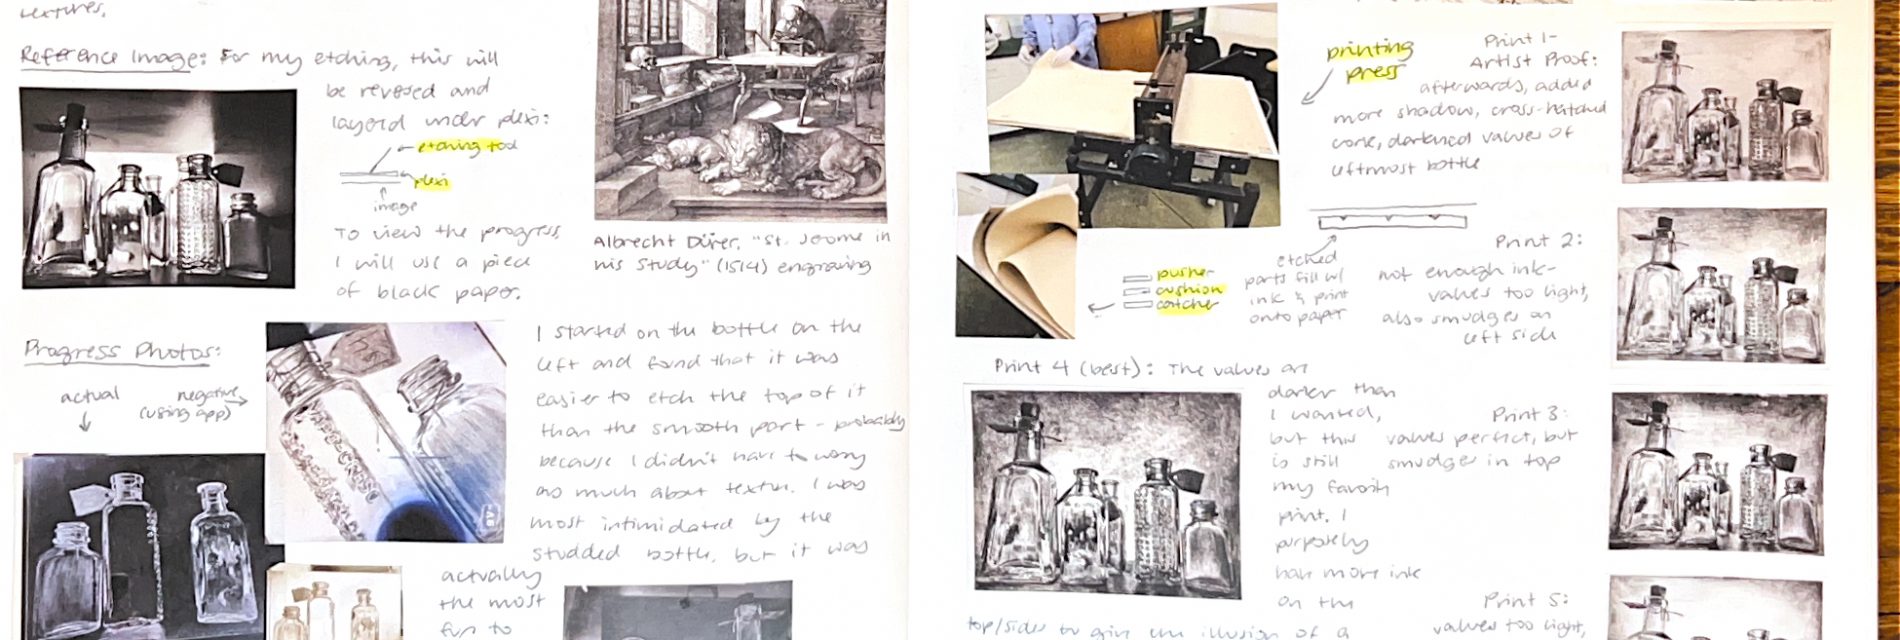 textures.
Reference Image: For my etching, this will
be reversed and
layered under plexi:
etching tool
plexi
image
To view the progress,
I will use a piece
of black paper.
Albrecht Dürer, "St. Jerome in
his Study" (1514) engraving
Progress Photos:
actual
negative
(using app)
I started on the bottle on the
left and found that it was
easier to etch the top of it
than the smooth part - probably
because I didn't have to worry
as much about texture. I was
most intimidated by the
studded bottle, but it was
actually
the most
fun to
printing
press
Print 1-
Artist Proof:
afterwards, added
more shadow, cross-hatched
more, darkened values of
leftmost bottle
pusher
cushion
catcher
etched
parts fill w/
ink & print
onto paper
Print 2:
not enough ink-
values too light,
also smudges on
left side
Print 4 (best): The values are
darker than
I wanted,
but this
is still
my favorite
print. I
purposely
have more ink
on the
top/sides to give the illusion of a
Print 3:
values perfect, but
smudge in top
Print 5:
values too light,